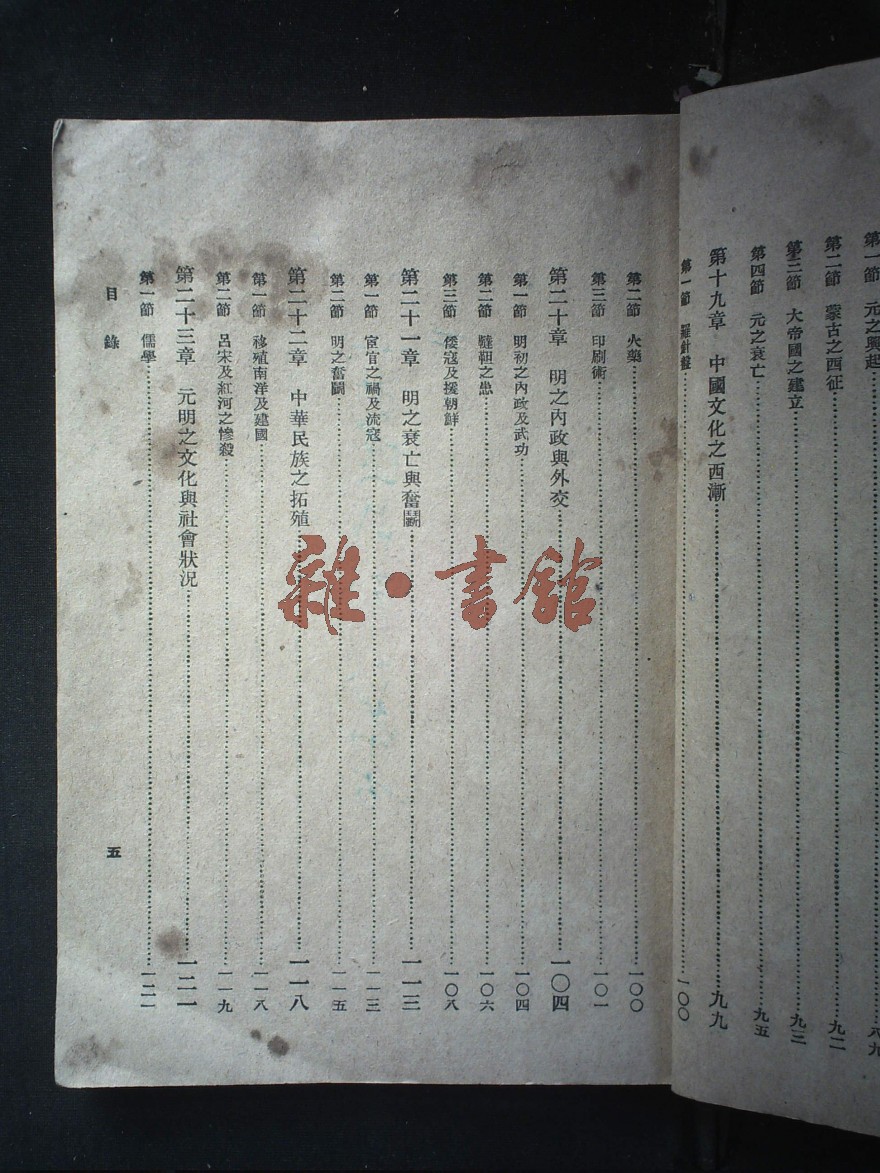 第一節　元之興起………八九
第二節　蒙古之西征………九二
第三節　大帝國之建立………九三
第四節　元之衰亡………九五
第十九章　中國文化之西漸………九九
第一節　羅針盤………一〇〇
第二節　火藥………一〇〇
第三節　印刷術………一〇一
第二十章　明之內政與外交………一〇四
第一節　明初之內政及武功………一〇四
第二節　韃靼之患………一〇六
第三節　倭寇及援朝鮮………一〇八
第二十一章　明之衰亡與奮鬭………一一三
第一節　宦官之禍及流寇………一一三
第二節　明之奮鬭………一一五
第二十二章　中華民族之拓殖………一一八
第一節　移殖南洋及建國………一一八
第二節　呂宋及紅河之慘殺………一一九
第二十三章　元明之文化與社會狀況………一二一
第一節　儒學………一二一
目錄
五
雜·書館